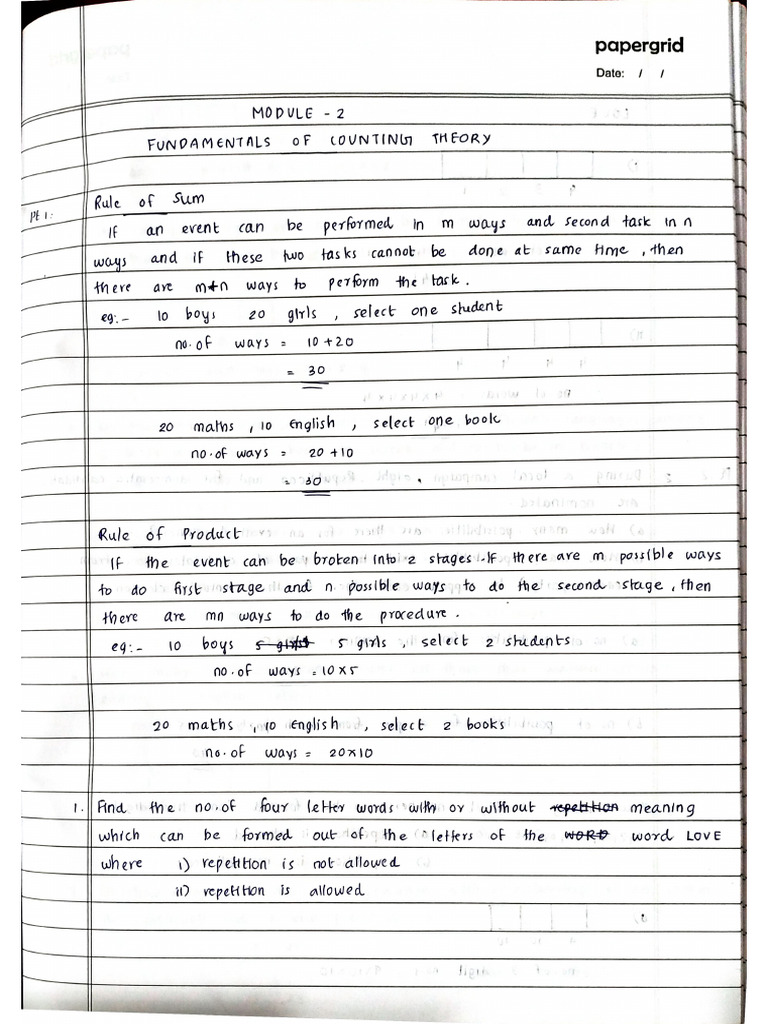 papergrid
Date: / /
MODULE - 2
FUNDAMENTALS OF COUNTING THEORY
PE 1:
Rule of Sum
If an event can be performed in m ways and second task in n
ways and if these two tasks cannot be done at same time, then
there are m+n ways to perform the task.
eg:- 10 boys 20 girls, select one student
no. of ways = 10 + 20
= 30
20 maths, 10 English, select one book
no. of ways = 20 + 10
= 30
Rule of Product
If the event can be broken into 2 stages. If there are m possible ways
to do first stage and n possible ways to do the second stage, then
there are mn ways to do the procedure.
eg:- 10 boys 5 girls, select 2 students
no. of ways = 10 x 5
20 maths, 10 english, select 2 books
no. of ways = 20 x 10
1. Find the no. of four letter words with or without repetition meaning
which can be formed out of the letters of the WORD word LOVE
where i) repetition is not allowed
ii) repetition is allowed